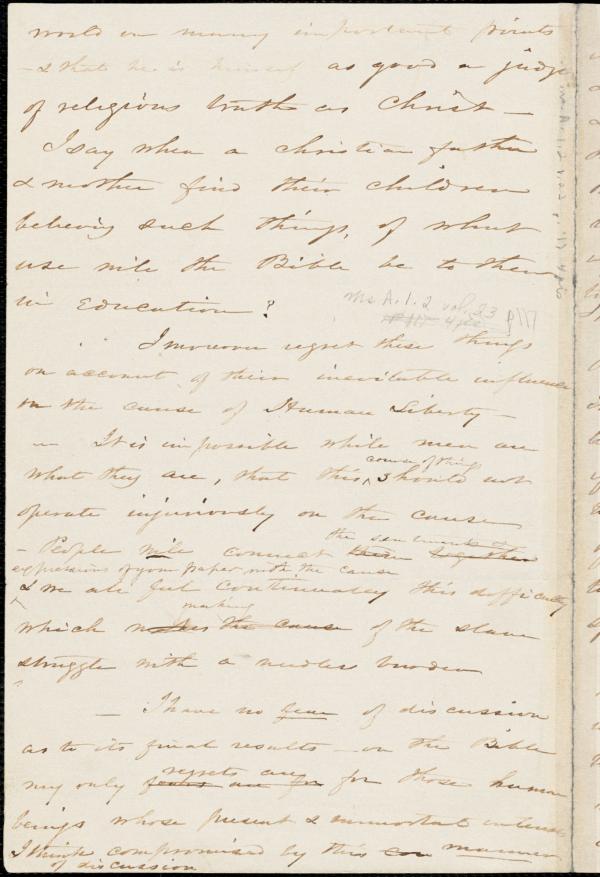 world in many important points
- & that he is himself as good a judge
of religious truth as Christ -
I say when a christian father
& mother find their children
believing such things, of what
use will the Bible be to them
in Education?
Ms. A. 1. 2 vol. 23 p 117
I moreover regret these things
on account of their inevitable influence
on the cause of Human Liberty -
- It is impossible while men are
what they are, that this course of things should not
operate injuriously on the cause
- People will connect the sentiments &
expressions of your paper with the cause
& we all feel continually this difficulty
which making the cause of the slave
struggle with a needless burden
- I have no fear of discussion
as to its final results - on the Bible
my only regrets are for those human
beings whose present & immortal interests
I think compromised by this manner
of discussion